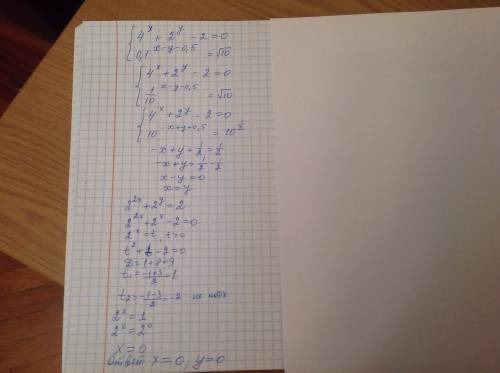 {4^x + 2^y - 2 = 0
0,1^(x-y-0,5) = √10
{4^x + 2^y - 2 = 0
1/10^(x-y-0,5) = √10
{4^x + 2^y - 2 = 0
10^(-x+y+0,5) = 10^(1/2)
-x+y+1/2=1/2
-x+y=1/2-1/2
x-y=0
x=y
2^(2x)+2^y=2
2^(2x)+2^x-2=0
2^x=t, t>0
t^2+t-2=0
D=1+8=9
t₁=(-1+3)/2=1
t₂=(-1-3)/2=-2
2^x=1
2^x=2^0
x=0
Ответ x=0, y=0